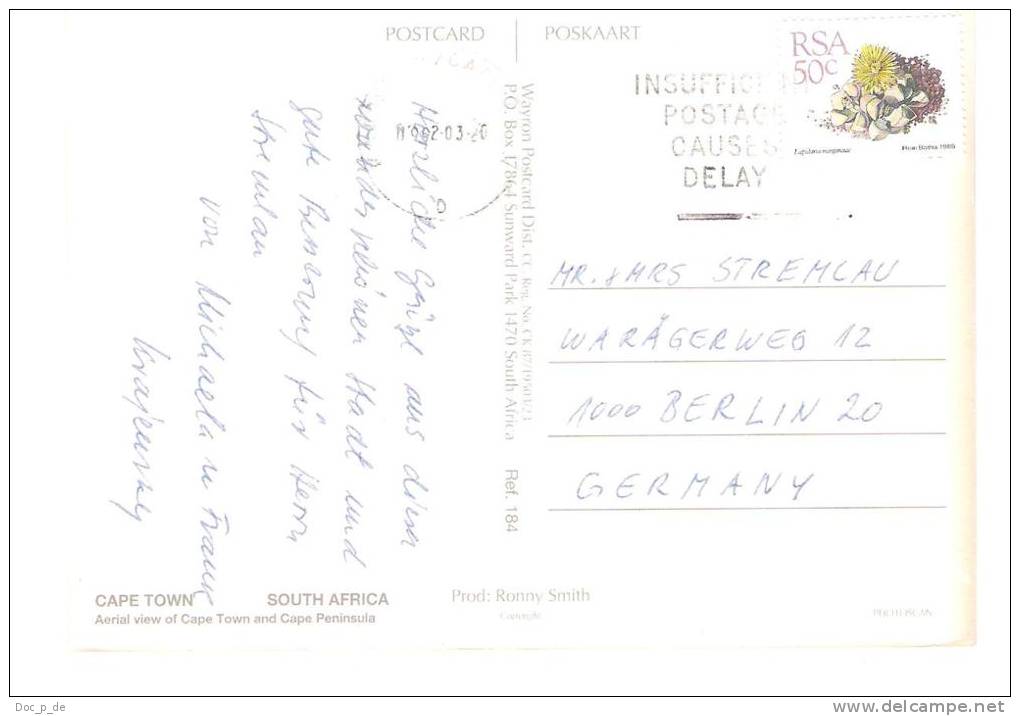 POSTCARD
POSKAART
RSA
50c
INSUFFICIENT
POSTAGE
CAUSES
DELAY
1992-03-20
Herzliche Grüße aus dieser
wunderschönen Stadt und
gute Besserung für Herrn
Stremlau
von Michaela u Frank
Wayron Postcard Dist. cc Reg. No. CK 87/19503/23
P.O. Box 17864 Sunward Park 1470 South Africa Ref. 184
MR. & MRS STREMLAU
WARÄGERWEG 12
1000 BERLIN 20
GERMANY
CAPE TOWN SOUTH AFRICA
Aerial view of Cape Town and Cape Peninsula
Prod: Ronny Smith
Copyright
PHOTOSCAN
Doc_p_de
www.delcampe.net